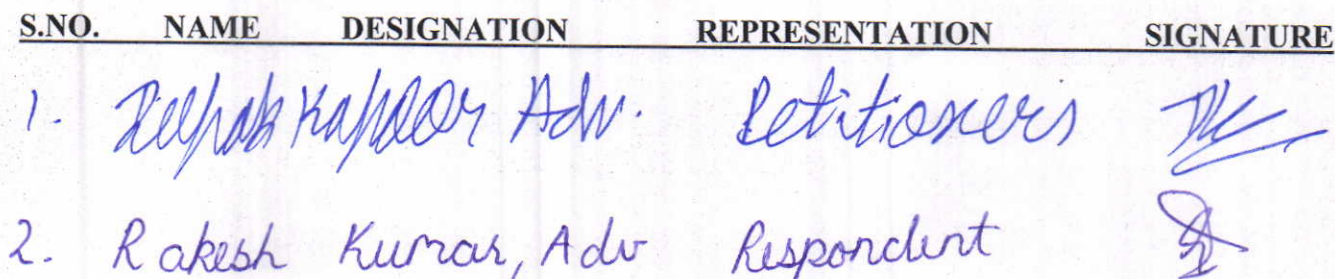 S.NO. NAME DESIGNATION REPRESENTATION SIGNATURE
1. Deepak Kapoor Adv. Petitioners
2. Rakesh Kumar, Adv Respondent